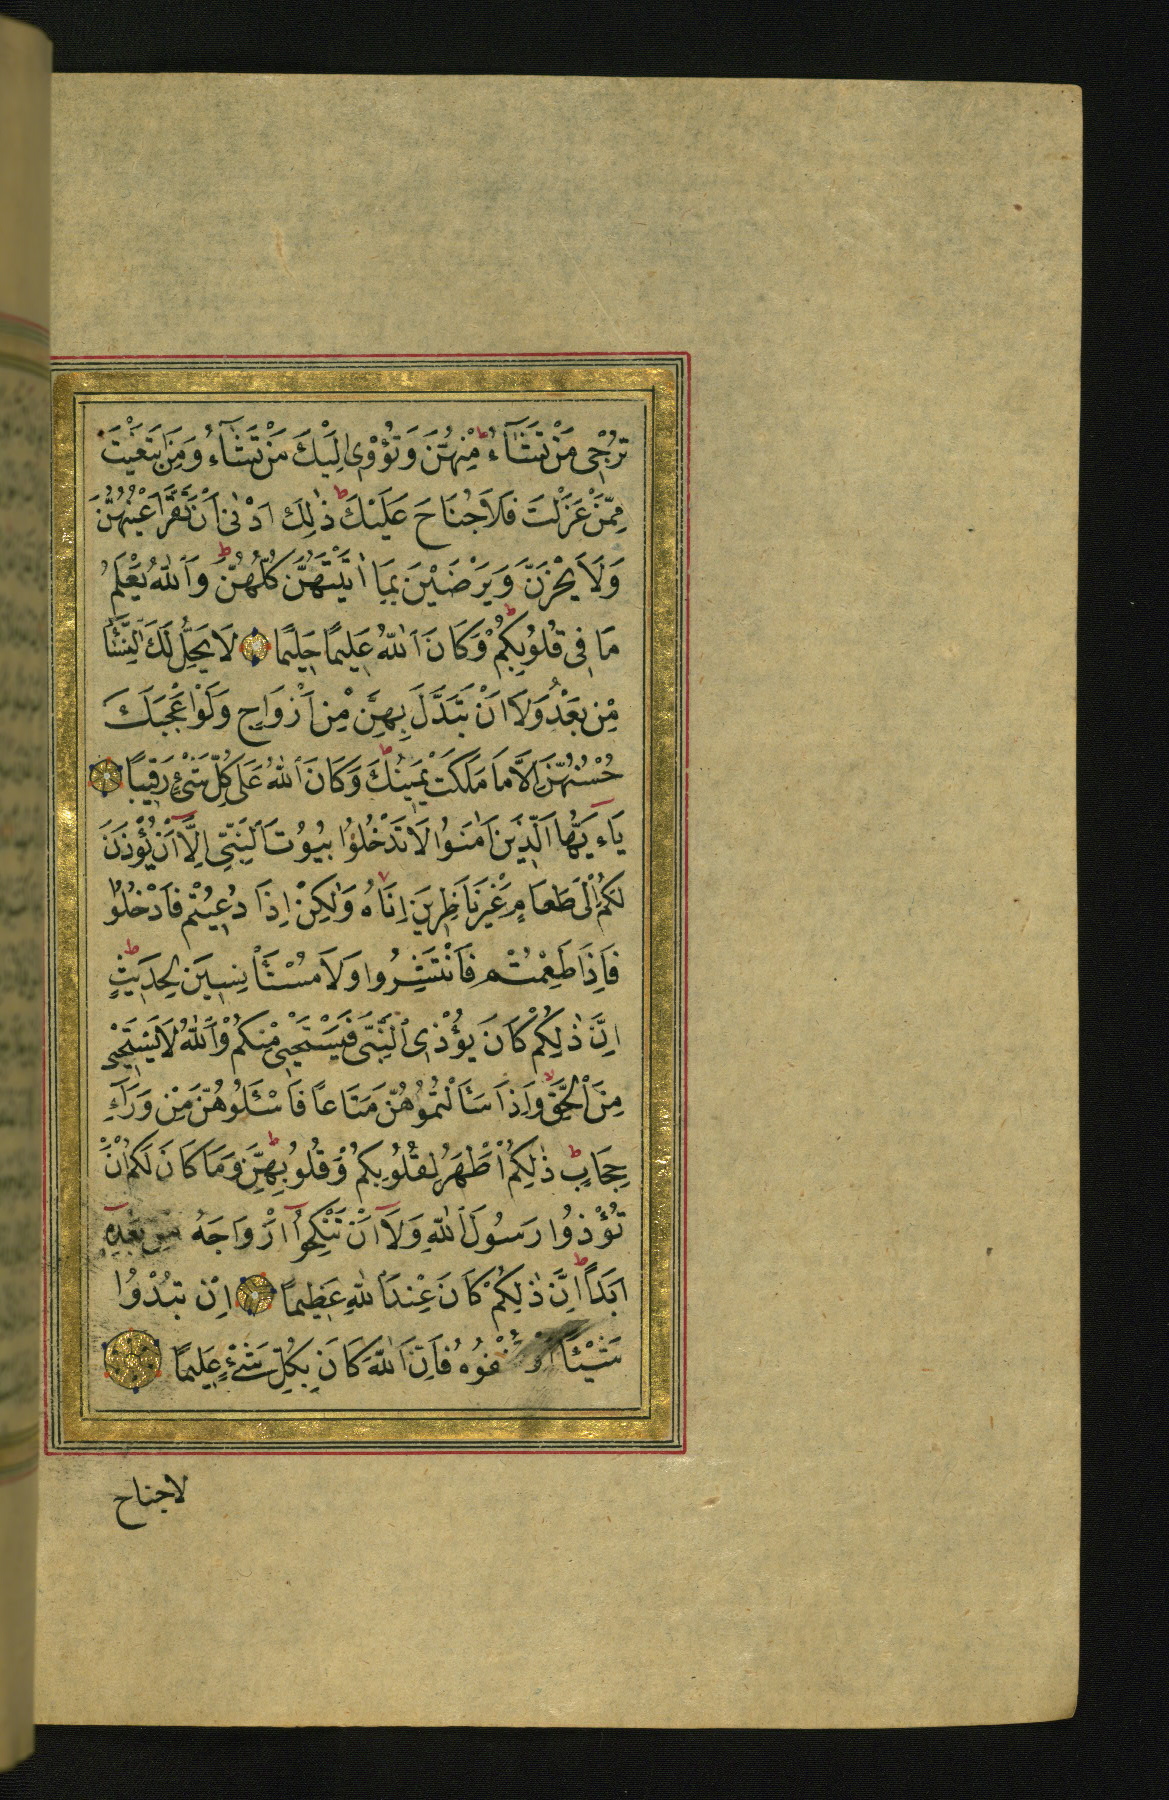 تُرْجِى مَنْ تَشَآءُ مِنْهُنَّ وَتُؤْوِى اِلَيْكَ مَنْ تَشَآءُ وَمَنِ ابْتَغَيْتَ
مِمَّنْ عَزَلْتَ فَلَا جُنَاحَ عَلَيْكَ ط ذٰلِكَ اَدْنٰى اَنْ تَقَرَّ اَعْيُنُهُنَّ
وَلَا يَحْزَنَّ وَيَرْضَيْنَ بِمَا اٰتَيْتَهُنَّ كُلُّهُنَّ ط وَاللّٰهُ يَعْلَمُ
مَا فِى قُلُوبِكُمْ ط وَكَانَ اللّٰهُ عَلِيمًا حَلِيمًا لَا يَحِلُّ لَكَ النِّسَآءُ
مِنْ بَعْدُ وَلَا اَنْ تَبَدَّلَ بِهِنَّ مِنْ اَزْوَاجٍ وَلَوْ اَعْجَبَكَ
حُسْنُهُنَّ اِلَّا مَا مَلَكَتْ يَمِينُكَ ط وَكَانَ اللّٰهُ عَلٰى كُلِّ شَىْءٍ رَقِيبًا
يَاءَيُّهَا الَّذِينَ اٰمَنُوا لَا تَدْخُلُوا بُيُوتَ النَّبِىِّ اِلَّا اَنْ يُؤْذَنَ
لَكُمْ اِلٰى طَعَامٍ غَيْرَ نَاظِرِينَ اِنَاهُ وَلٰكِنْ اِذَا دُعِيتُمْ فَادْخُلُوا
فَاِذَا طَعِمْتُمْ فَانْتَشِرُوا وَلَا مُسْتَأْنِسِينَ لِحَدِيثٍ ط
اِنَّ ذٰلِكُمْ كَانَ يُؤْذِى النَّبِىَّ فَيَسْتَحْيِى مِنْكُمْ وَاللّٰهُ لَا يَسْتَحْيِى
مِنَ الْحَقِّ وَاِذَا سَأَلْتُمُوهُنَّ مَتَاعًا فَاسْئَلُوهُنَّ مِنْ وَرَآءِ
حِجَابٍ ط ذٰلِكُمْ اَطْهَرُ لِقُلُوبِكُمْ وَقُلُوبِهِنَّ ط وَمَا كَانَ لَكُمْ اَنْ
تُؤْذُوا رَسُولَ اللّٰهِ وَلَا اَنْ تَنْكِحُوا اَزْوَاجَهُ مِنْ بَعْدِهِ
اَبَدًا ط اِنَّ ذٰلِكُمْ كَانَ عِنْدَ اللّٰهِ عَظِيمًا اِنْ تُبْدُوا
شَيْئًا اَوْ تُخْفُوهُ فَاِنَّ اللّٰهَ كَانَ بِكُلِّ شَىْءٍ عَلِيمًا
لاجناح